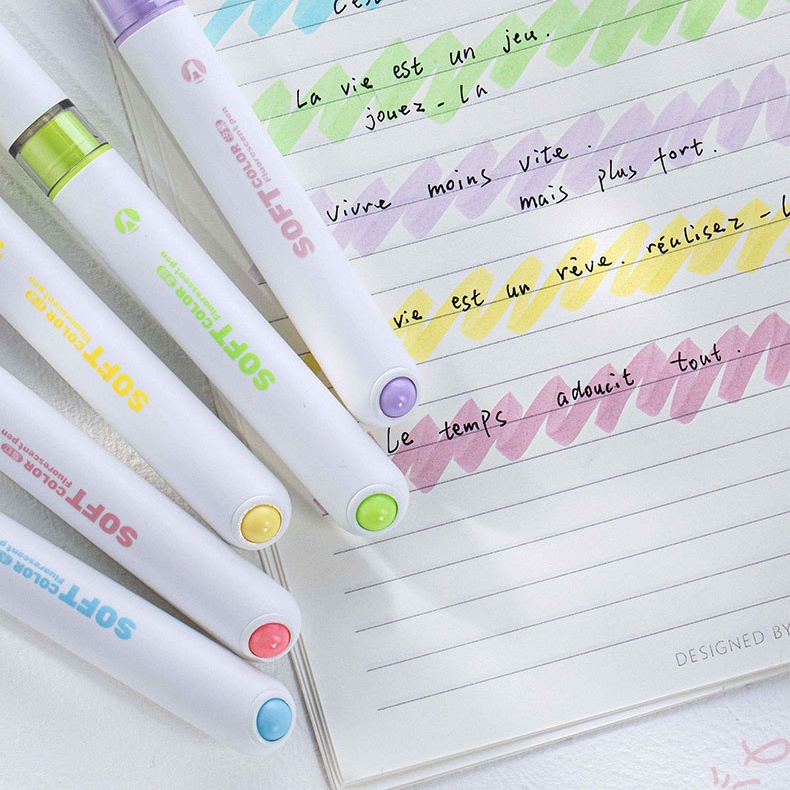 La vie est un jeu.
jouez - la
vivre moins vite.
mais plus fort.
vie est un rêve. réalisez - l
Le temps adoucit tout.
DESIGNED BY
SOFT COLOR
Fluorescent pen
SOFT COLOR
Fluorescent pen
SOFT COLOR
Fluorescent pen
SOFT COLOR
Fluorescent pen
SOFT COLOR
Fluorescent p